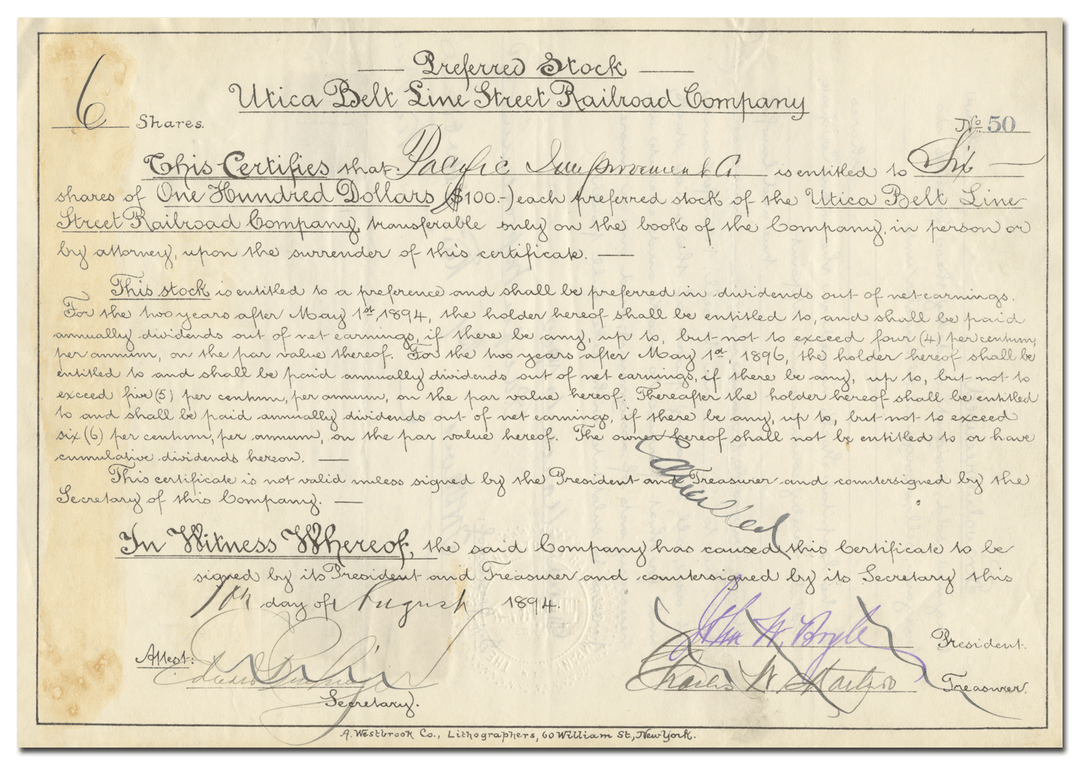 Preferred Stock
Utica Belt Line Street Railroad Company
6 Shares.
No 50
This Certifies that Pacific Improvement Co is entitled to Six
shares of One Hundred Dollars ($100.-) each preferred stock of the Utica Belt Line
Street Railroad Company, transferable only on the books of the Company, in person or
by attorney, upon the surrender of this certificate.
This stock is entitled to a preference and shall be preferred in dividends out of net earnings.
For the two years after May 1st, 1894, the holder hereof shall be entitled to, and shall be paid
annually dividends out of net earnings, if there be any, up to, but not to exceed four (4) per centum,
per annum, on the par value thereof. For the two years after May 1st, 1896, the holder hereof shall be
entitled to and shall be paid annually dividends out of net earnings, if there be any, up to, but not to
exceed five (5) per centum, per annum, on the par value hereof. Thereafter the holder hereof shall be entitled
to and shall be paid annually dividends out of net earnings, if there be any, up to, but not to exceed
six (6) per centum, per annum, on the par value hereof. The owner hereof shall not be entitled to or have
cumulative dividends hereon.
Cancelled
This certificate is not valid unless signed by the President and Treasurer and countersigned by the
Secretary of this Company.
In Witness Whereof, the said Company has caused this Certificate to be
signed by its President and Treasurer and countersigned by its Secretary this
10th day of August 1894.
John W. Boyle President.
Attest:
Charles W. Treasurer.
Secretary.
A. Westbrook Co., Lithographers, 60 William St, New York.